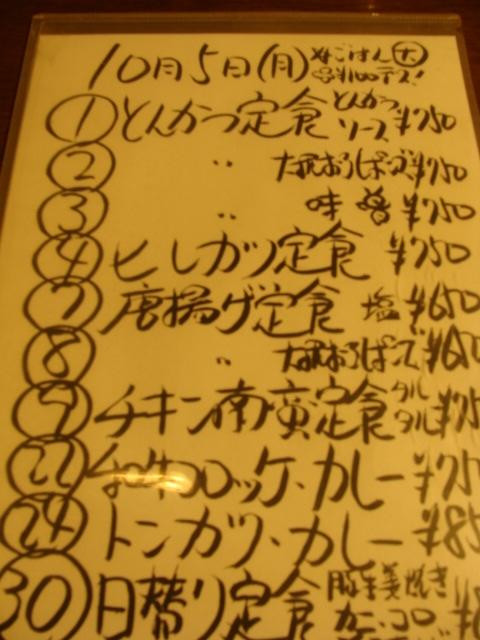 10月5日(月) ※ごはん大
¥100デス!
① とんかつ定食 とんかつソース ¥750
② 〃 大根おろしぽんズ ¥750
③ 〃 味噌 ¥750
④ ヒレカツ定食 ¥750
⑦ 唐揚げ定食 塩 ¥650
⑧ 〃 大根おろしぽんズ ¥650
⑨ チキン南蛮定食 タルタル ¥75
㉒ コロッケ・カレー ¥75
㉔ トンカツ・カレー ¥85
㉚ 日替り定食 豚生姜焼き
カニ・コロ